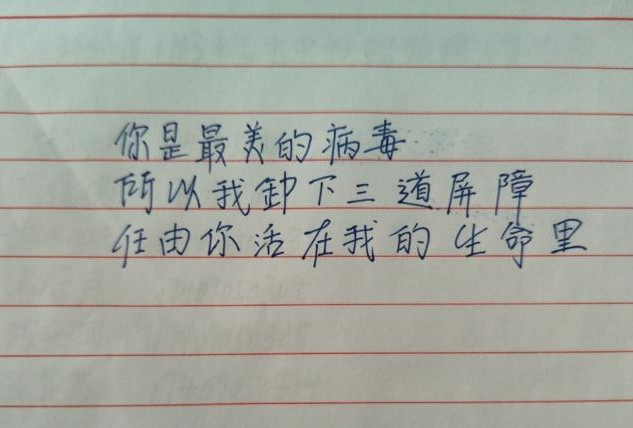 你是最美的病毒
所以我卸下三道屏障
任由你活在我的生命里